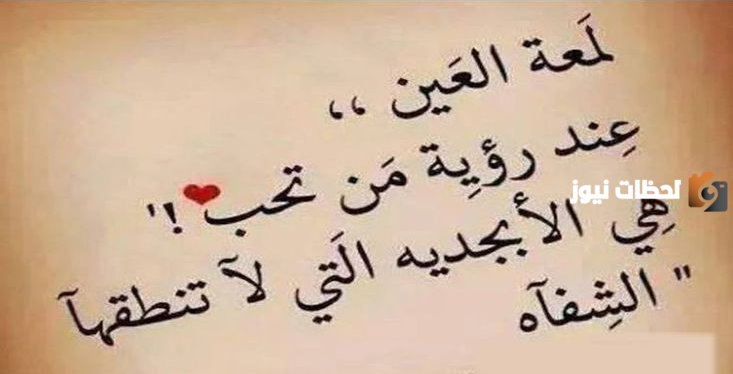 لمَعة العَين ،،
عِند رؤيِة مَن تحب❤ !'
هِي الأبجديه الَتي لآ تنطقهآ
" الشِفآه
لحظات نيوز